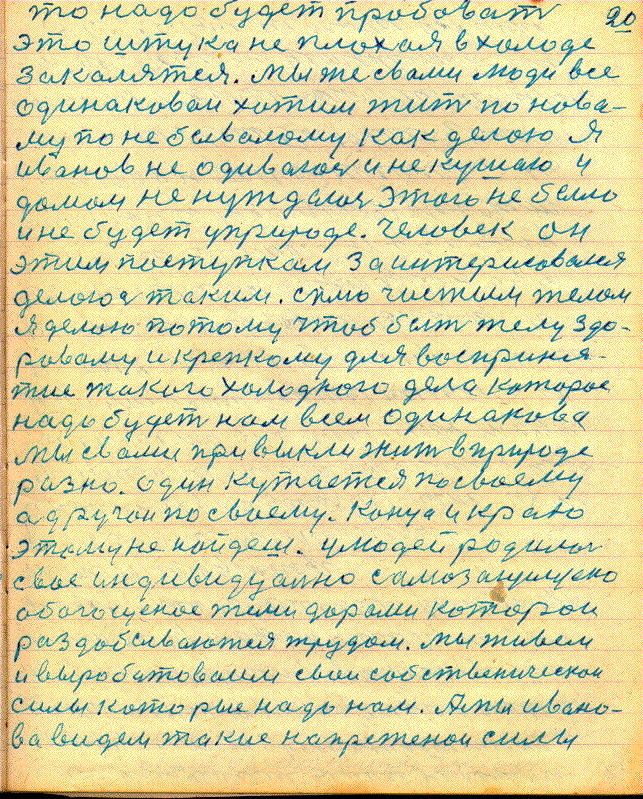 то надо будет пробоват 20
это штука не плохая в холоде
закалятся. Мы же свами люди все
одинаковаи хотим жит по нова-
му по не бывалому как делою я
иванов не одиваюся и не кушаю и
домом не нуждаюся этого не было
и не будет уприроде. Человек он
этим поступкам заинтерисовался
делоюя таким. сило чистым телом
я делою потому чтоб быт телу здо-
ровому и крепкому для восприня-
тие такого холодного дела которое
надо будет нам всем одинакова
мы свами привыкли жит вприроде
разно. один кутается посвоему
а другои посвоему. Конуа и краю
этому не найдеш. улюдей родилос
свое индивидуално самозащищено
обогощеное теми дарами которои
раздобываются трудом. мы живем
и выроботоваем свои собственическои
силы которые надо нам. А ты ивано-
ва видем такие напреженои силы